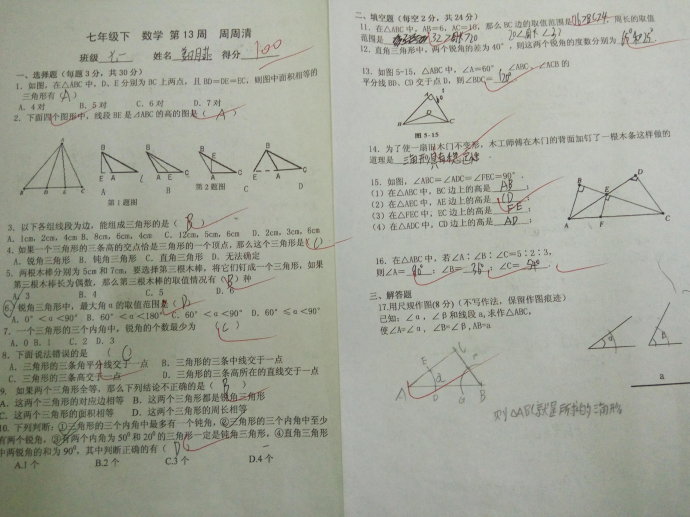 七年级下 数学 第13周 周周清
班级 七.一 姓名 得分 100
一、选择题（每题3分，共30分）
1. 如图，在△ABC中，D、E分别为BC上两点，且BD=DE=EC，则图中面积相等的
三角形有（A）
A. 4对 B. 5对 C. 6对 D. 7对
2. 下面四个图形中，线段BE是⊿ABC的高的图是（A）
A B D E C
B E A C
A B C D
第1题图 第2题图
3. 以下各组线段为边，能组成三角形的是（B）
A. 1cm，2cm，4cm B. 8cm，6cm，4cm C. 12cm，5cm，6cm D. 2cm，3cm，6cm
4. 如果一个三角形的三条高的交点恰是三角形的一个顶点，那么这个三角形是（C）
A. 锐角三角形 B. 钝角三角形 C. 直角三角形 D. 无法确定
5. 两根木棒分别为5cm和7cm，要选择第三根木棒，将它们钉成一个三角形，如果
第三根木棒长为偶数，那么第三根木棒的取值情况有（B）种
A. 3 B. 4 C. 5 D. 6
6. 锐角三角形中，最大角α的取值范围是（D）
A. 0°＜α＜90° B. 60°＜α＜180° C. 60°＜α＜90° D. 60°≤α＜90°
7. 一个三角形的三个内角中，锐角的个数最少为（C）
A. 0 B. 1 C. 2 D. 3
8. 下面说法错误的是（C）
A. 三角形的三条角平分线交于一点 B. 三角形的三条中线交于一点
C. 三角形的三条高交于一点 D. 三角形的三条高所在的直线交于一点
9. 如果两个三角形全等，那么下列结论不正确的是（B）
A. 这两个三角形的对应边相等 B. 这两个三角形都是锐角三角形
C. 这两个三角形的面积相等 D. 这两个三角形的周长相等
10. 下列判断：①三角形的三个内角中最多有一个钝角，②三角形的三个内角中至少
有两个锐角，③有两个内角为50⁰和20⁰的三角形一定是钝角三角形，④直角三角形
中两锐角的和为90⁰，其中判断正确的有（D）
A.1个 B.2个 C.3个 D.4个
二、填空题（每空2分，共24分）
11. 在△ABC中，AB=6，AC=10，那么BC边的取值范围是 周长的取值
范围是
12. 直角三角形中，两个锐角的差为40°，则这两个锐角的度数分别为 65°和25°
13. 如图5-15，△ABC中，∠A=60°，∠ABC、∠ACB的
平分线BD、CD交于点D，则∠BDC= 120°
A B D C
图5-15
14. 为了使一扇旧木门不变形，木工师傅在木门的背面加钉了一根木条这样做的
道理是 三角形具有稳定性
15. 如图，∠ABC=∠ADC=∠FEC=90°.
（1）在△ABC中，BC边上的高是 AB ；
（2）在△AEC中，AE边上的高是 CD ；
（3）在△FEC中，EC边上的高是 FE ；
（4）在△ADC中，CD边上的高是 AD
A B C D E F
16. 在△ABC中，若∠A：∠B：∠C=5：2：3，
则∠A= 90° ；∠B= 36° ；∠C= 54° .
三、解答题
17.用尺规作图(8分)（不写作法，保留作图痕迹）
已知：∠α，∠β和线段a，求作△ABC，
使∠A=∠α，∠B=∠β，AB=a
A D B E C a
α β
a
则△ABC就是所求的三角形